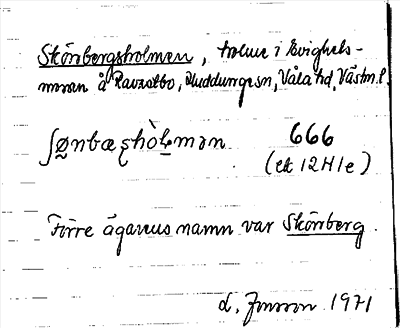 Skönbergsholmen, holme i Evighets-
mossen å Ravastbo, Huddunge sn, Våla hd, Västm. l.
ʃø̱nbæʂhòɫmən 666
(ek 12H1e)
Förre ägarens namn var Skönberg.
L. Jonsson 1971